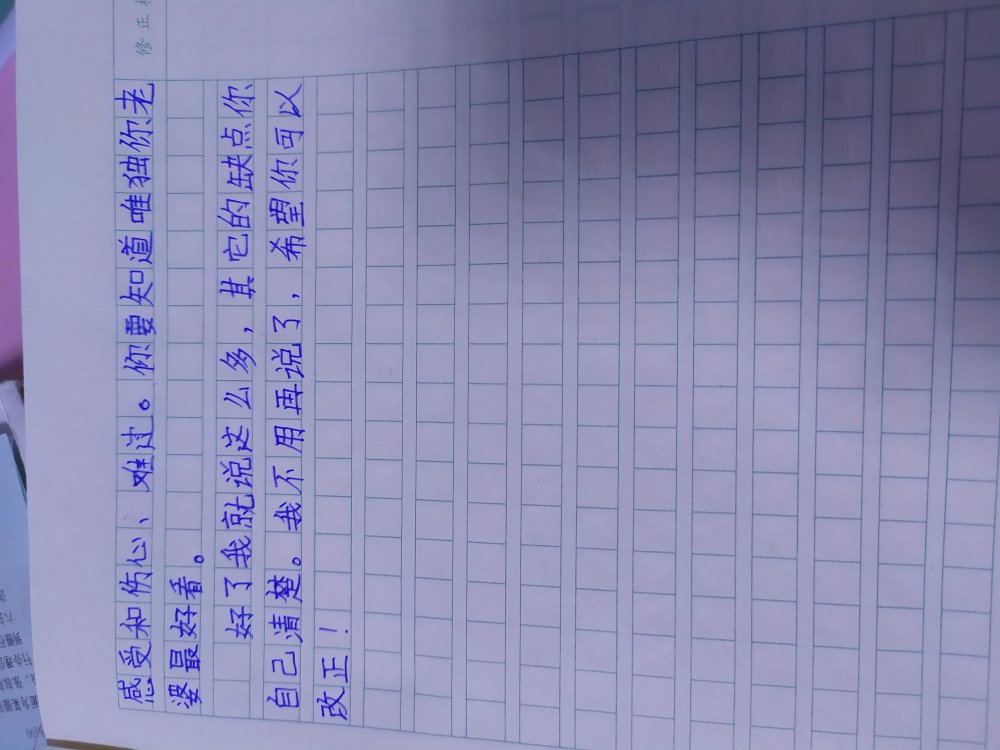 修正
感受和伤心、难过。你要知道唯独你老
婆最好看。
好了我就说这么多，其它的缺点你
自己清楚。我不用再说了，希望你可以
改正！